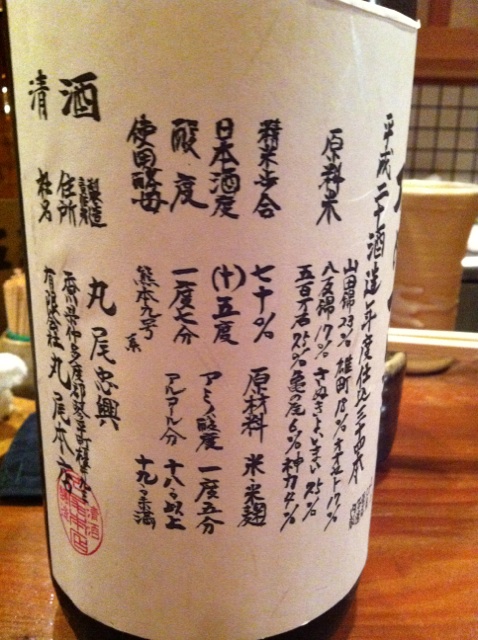 平成二十酒造年度仕込三十四本
原料米
山田錦23% 雄町12% オオセト17%
八反錦17% さぬきよいまい25%
五百万石25% 亀の尾6% 神力4%
精米歩合 七十% 原材料 米・米麹
日本酒度 (+)五度 アミノ酸度 一度五分
酸度 一度七分 アルコール分 十八々以上
十九々未満
使用酵母 熊本九号系
製造
住所
社名
丸尾忠興
香川県仲多度郡琴平町榎井
有限会社 丸尾本店
清酒